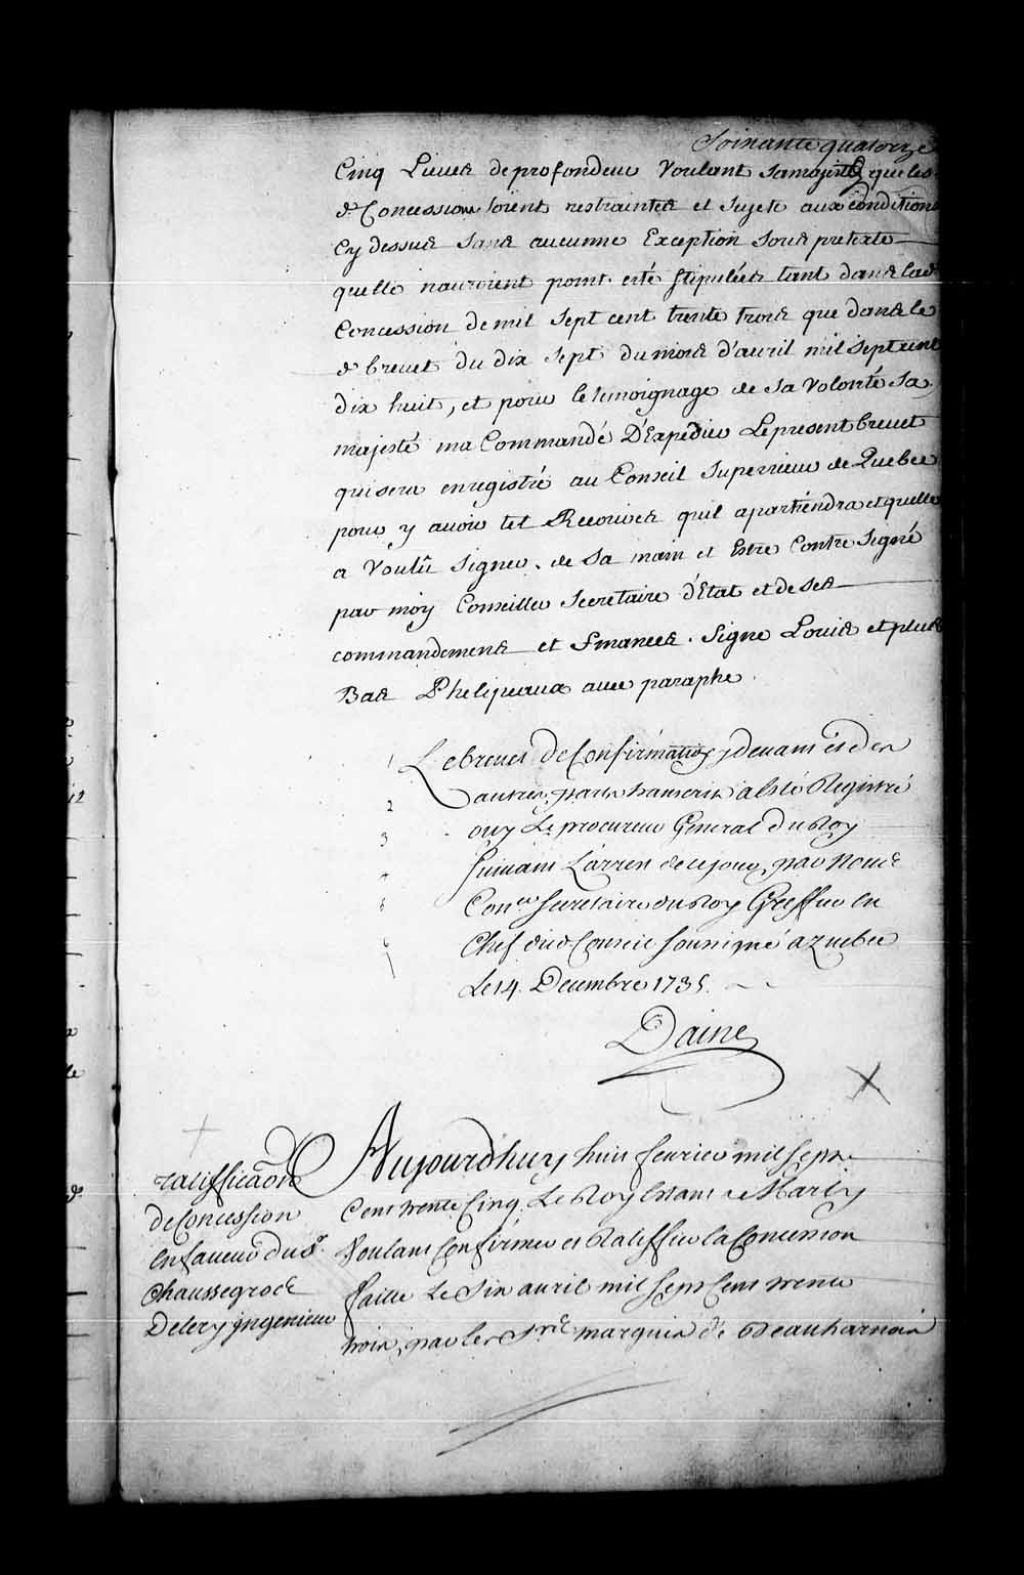 Soixante quatorze
Cinq Lieues de profondeur Voulant Samajesté que les
d. Concessions soient restraintes et Sujete aux conditions
Cy dessus Sans aucunne Exception Sous pretexte
quelle nauroient point esté Stipulées tant dans lad.
Concession de mil Sept cent trente trois que dans le
d. brevet du dix Sept du mois d'avril mil Sept cent
dix huit, et pour le temoignage de Sa Volonté Sa
majesté ma Commandé D'Expédier Le present brevet
qui sera enregistré au Conseil Superrieur de Quebec
pour y avoir tel Recours quil apartiendra et quelle
a Voulû Signer de Sa main et Estre Contre Signé
par moy Conseiller Secretaire d'Etat et de Ses
commandements et finances. Signé Louis et plus
Bas Phelipeaux avec paraphe.
Le brevet de Confirmation, devant et des
autres parts transcrit a esté Registré
ouy Le procureur General du Roy
Suivant L'arrest de ce jour, par Nous
Con.er Secretaire du Roy Greffier en
Chef dud. Conseil Soussigné a quebec
Le 14. Decembre 1735.
Daine
ratiffica.on
de Concession
en faveur du S.r
Chaussegros
Delery jngenieur
Aujourdhuy huit fevrier mil Sept
Cent trente Cinq, Le Roy Estant a Marly
Voulant Confirmer et Ratiffier la Concession
faitte Le Six avril mil Sept Cent trente
trois, par les S.rs marquis de Beauharnois